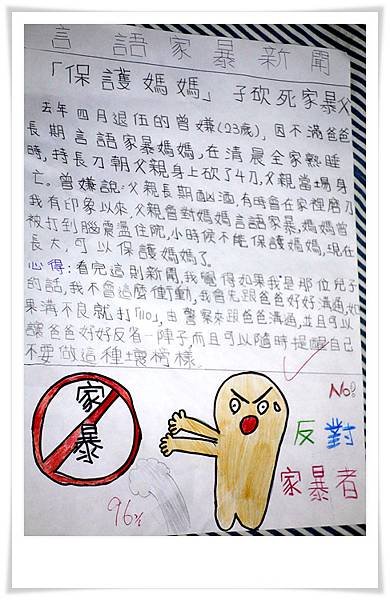 言語家暴新聞
「保護媽媽」子砍死家暴父
去年四月退伍的曾嫌(23歲),因不滿爸爸
長期言語家暴媽媽,在清晨全家熟睡
時,持長刀朝父親身上砍了4刀,父親當場身
亡。曾嫌說:父親長期酗酒,有時會在家裡磨刀
我有印象以來,父親會對媽媽言語家暴,媽媽曾
被打到腦震盪住院,小時候不能保護媽媽,現在
長大,可以保護媽媽了。
心得:看完這則新聞,我覺得如果我是那位兒子
的話,我不會這麼衝動,我會先跟爸爸好好溝通,如
果溝不良就打「110」,由警察來跟爸爸溝通,並且可以
讓爸爸好好反省一陣子,而且可以隨時提醒自己
不要做這種壞榜樣。
No!
家暴
反對
家暴者
96